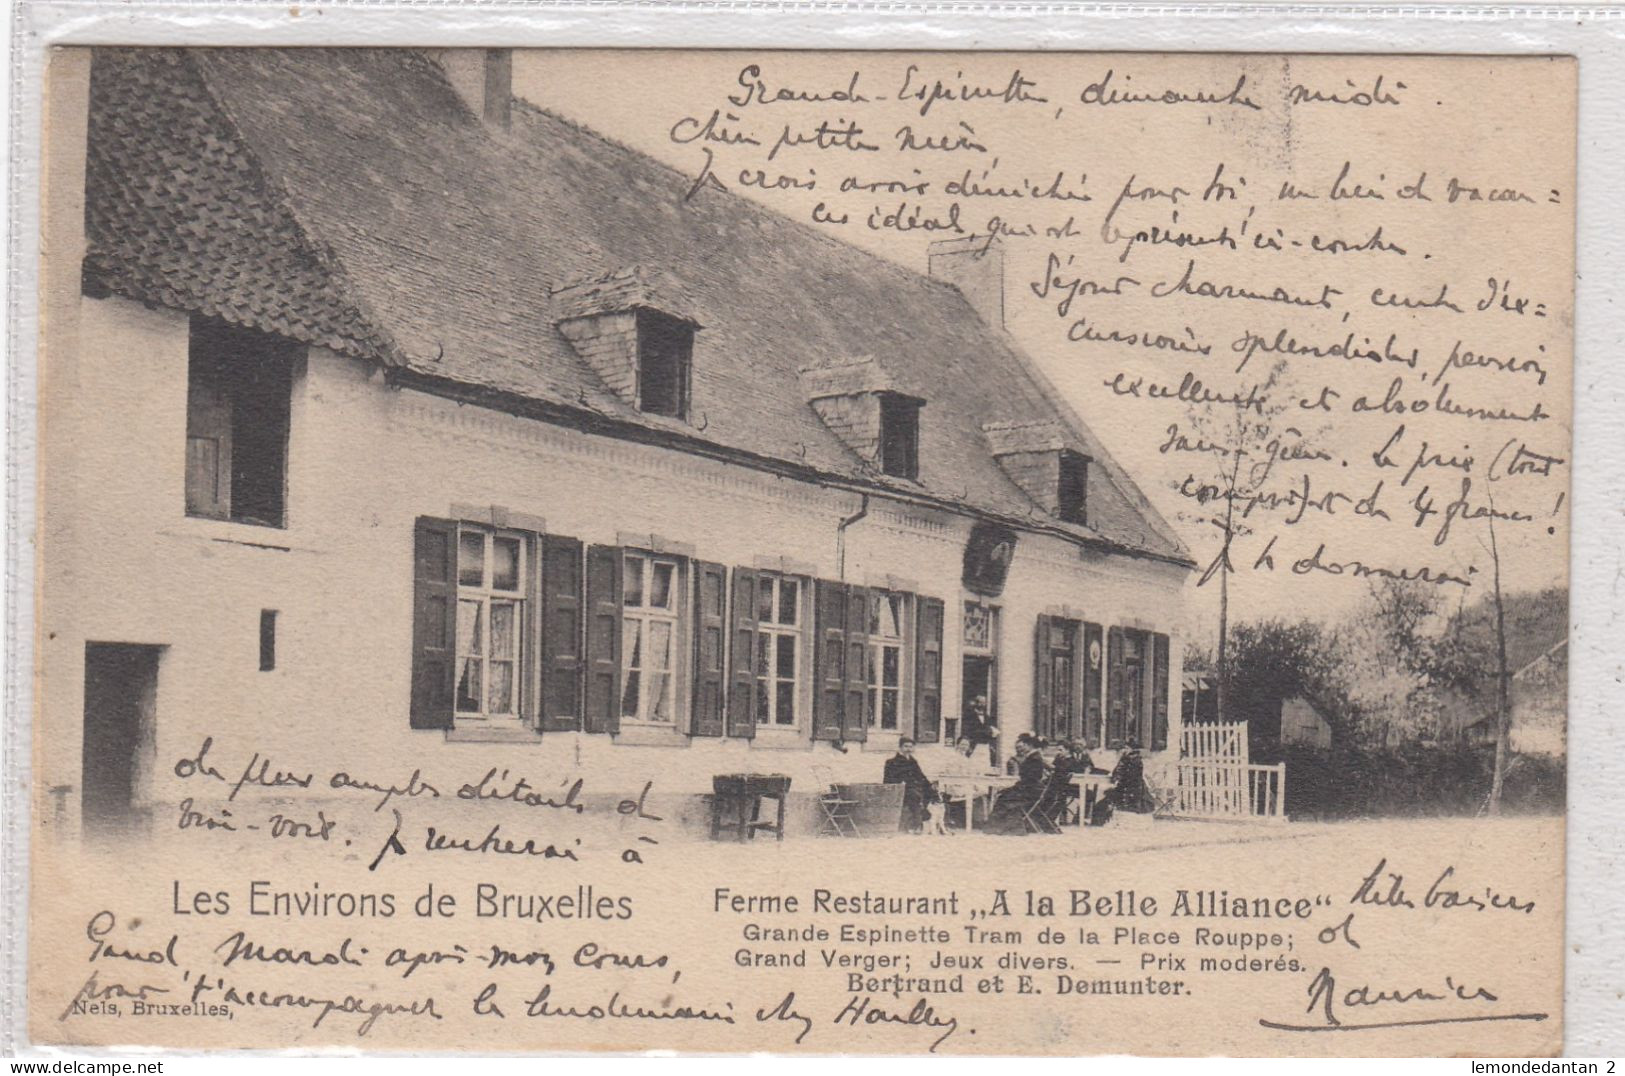 Grande-Espinette, dimanche midi.
Chère petite mère,
Je crois avoir déniché pour toi, un lieu de vacan=
ces idéal, qui est représenté ci-contre.
Séjour charmant, centre d'ex=
cursions splendides, pension
excellente et absolument
sans-gêne. Le prix (tout
compris) est de 4 francs!
Je te donnerai
de plus amples détails de
vive-voix. Je rentrerai à
Gand, Mardi après-mon cours,
pour t'accompagner le lendemain chez Houlley.
Milles baisers
de
Maurice
Les Environs de Bruxelles
Ferme Restaurant „A la Belle Alliance“
Grande Espinette Tram de la Place Rouppe;
Grand Verger; Jeux divers. — Prix moderés.
Bertrand et E. Demunter.
Nels, Bruxelles,
lemondedantan 2